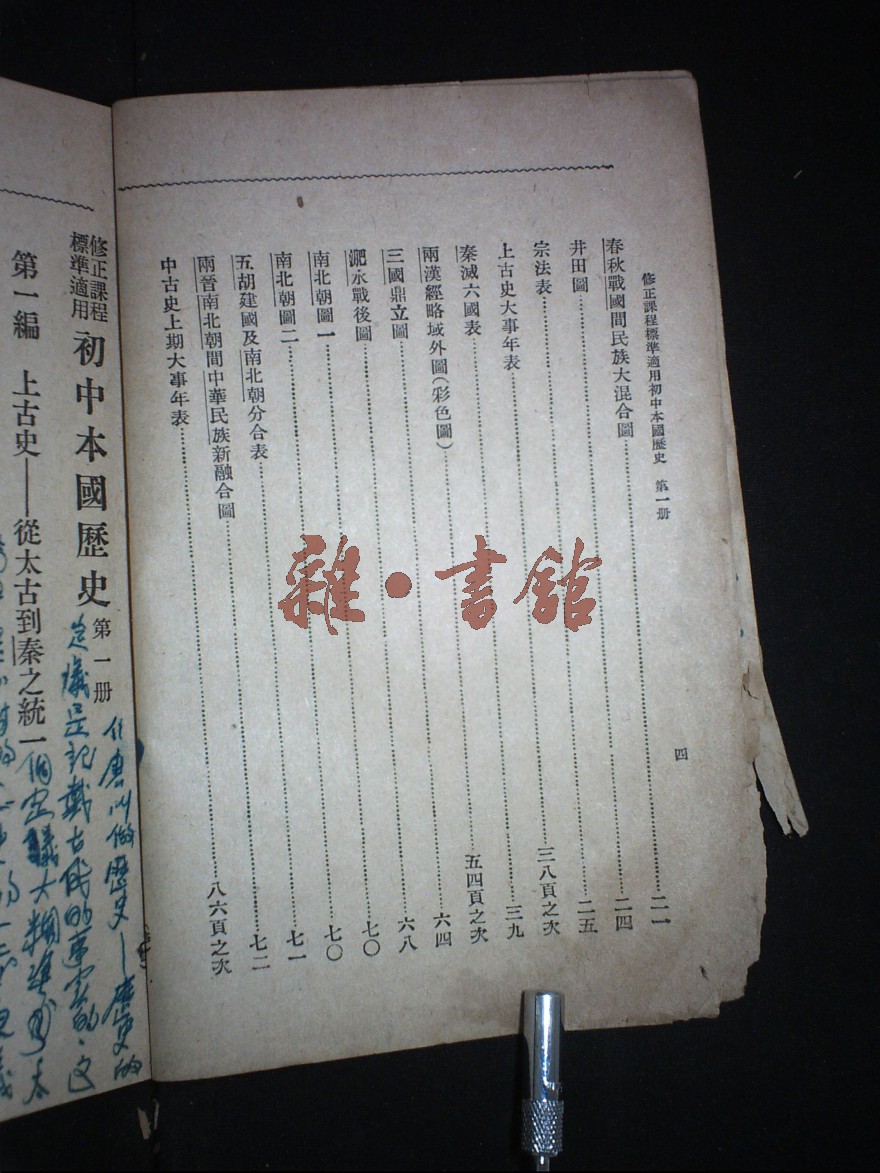 修正課程標準適用初中本國歷史 第一册
四
春秋戰國間民族大混合圖……二一
井田圖……二四
宗法表……二五
上古史大事年表……三八頁之次
秦滅六國表……三九
兩漢經略域外圖(彩色圖)……五四頁之次
三國鼎立圖……六四
淝水戰後圖……六八
南北朝圖一……七〇
南北朝圖二……七〇
五胡建國及南北朝分合表……七一
兩晉南北朝間中華民族新融合圖……七二
中古史上期大事年表……八六頁之次
修正課程標準適用 初中本國歷史 第一册
什麽叫做歷史—歷史的
定義是記載古代的事實的．这
第一編 上古史——從太古到秦之統一
個定義大
雜·書館